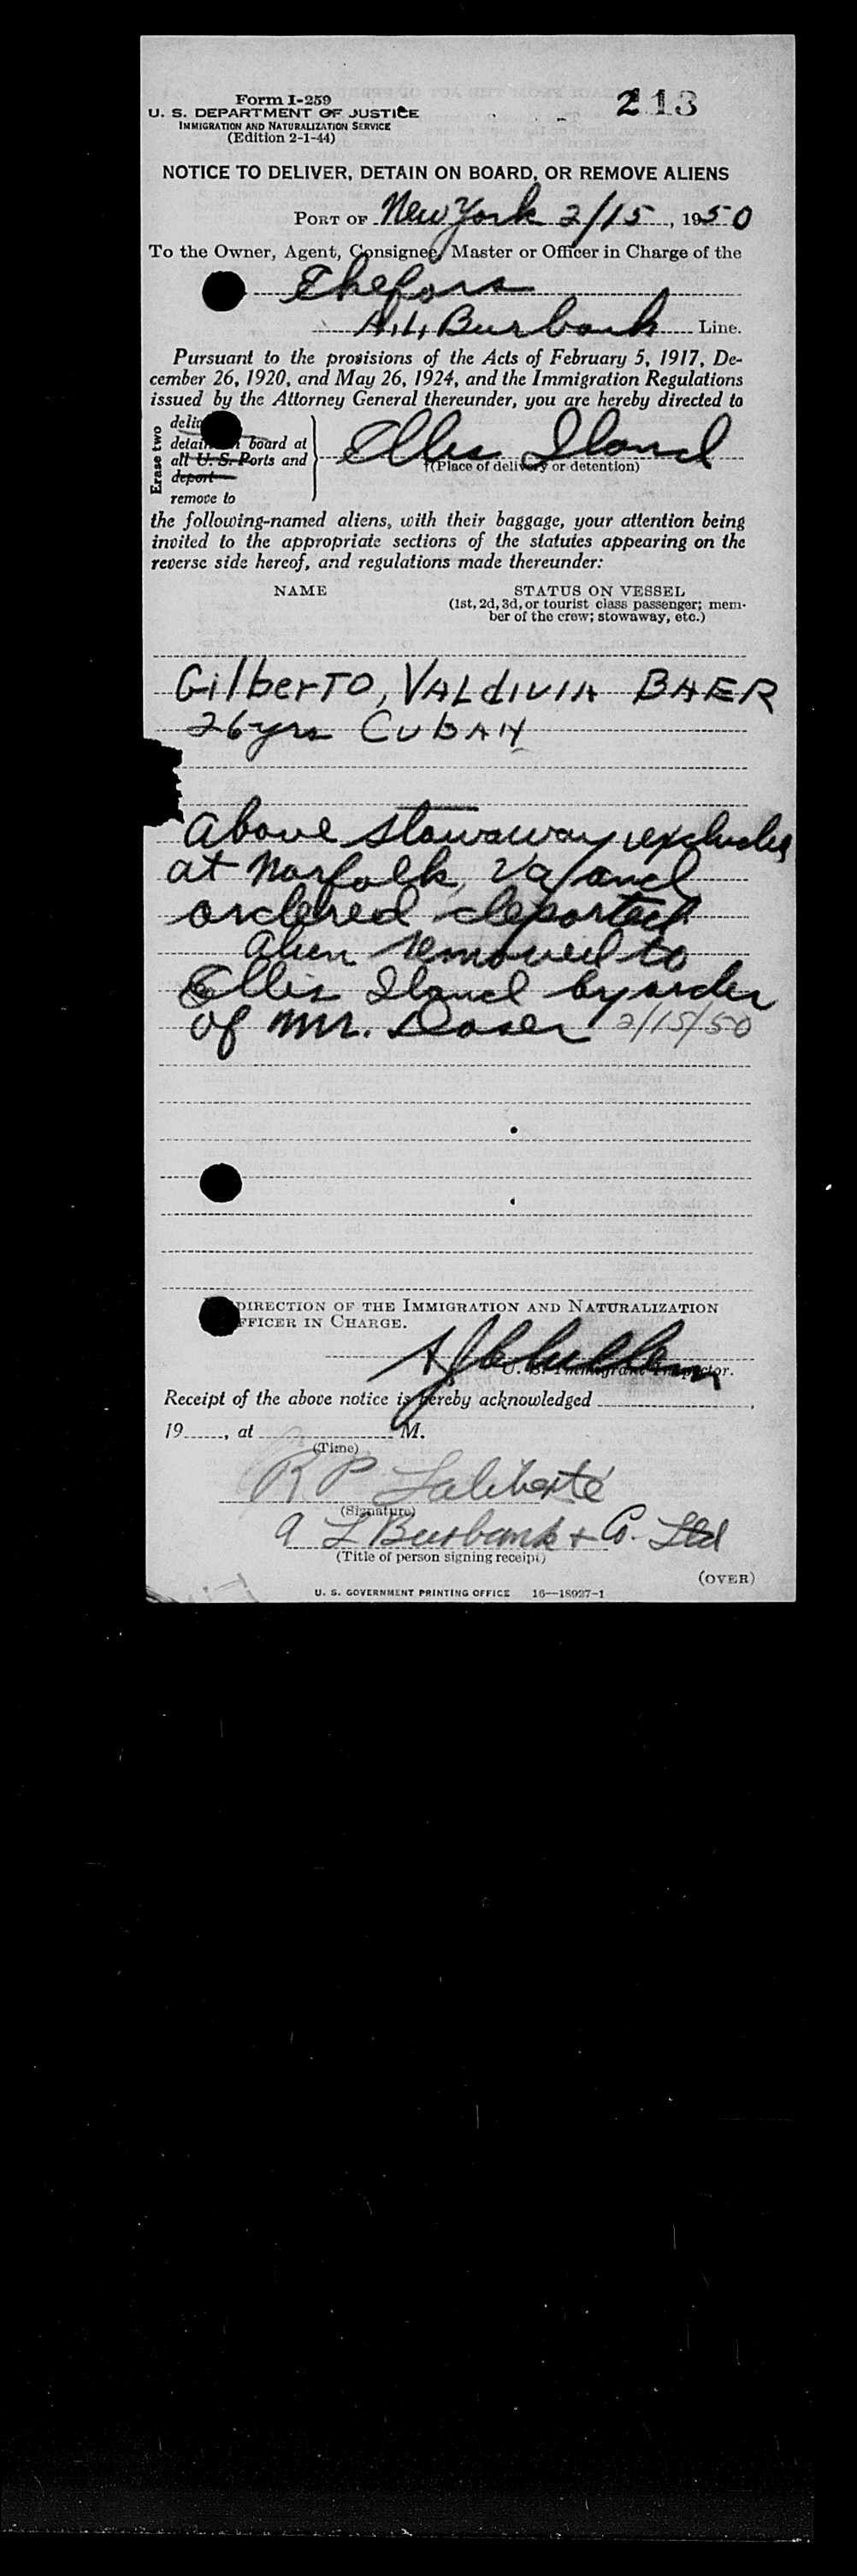 213
Form I-259
U. S. DEPARTMENT OF JUSTICE
IMMIGRATION AND NATURALIZATION SERVICE
(Edition 2-1-44)
NOTICE TO DELIVER, DETAIN ON BOARD, OR REMOVE ALIENS
PORT OF New York 2/15, 1950
To the Owner, Agent, Consignee, Master or Officer in Charge of the
Thefoss
A. L. Burbank Line.
Pursuant to the provisions of the Acts of February 5, 1917, De-
cember 26, 1920, and May 26, 1924, and the Immigration Regulations
issued by the Attorney General thereunder, you are hereby directed to
Erase two
deli
detain board at
all U. S. Ports and
deport
remove to
Ellis Iland
(Place of delivery or detention)
the following-named aliens, with their baggage, your attention being
invited to the appropriate sections of the statutes appearing on the
reverse side hereof, and regulations made thereunder:
NAME STATUS ON VESSEL
(1st, 2d, 3d, or tourist class passenger; mem-
ber of the crew; stowaway, etc.)
GilberTO, VALdIVIA BAER
26 yrs CUBAN
Above stowaway excluded
at Norfolk, Va and
ordered deported.
Alien removed to
Ellis Iland by order
of Mr. 2/15/50
DIRECTION OF THE IMMIGRATION AND NATURALIZATION
FFICER IN CHARGE.
U. S. Immigrant Inspector.
Receipt of the above notice is hereby acknowledged
19, at M.
(Time)
R P Laliberté
(Signature)
A L Burbank & Co. Ltd
(Title of person signing receipt)
(OVER)
U. S. GOVERNMENT PRINTING OFFICE 16—18927-1